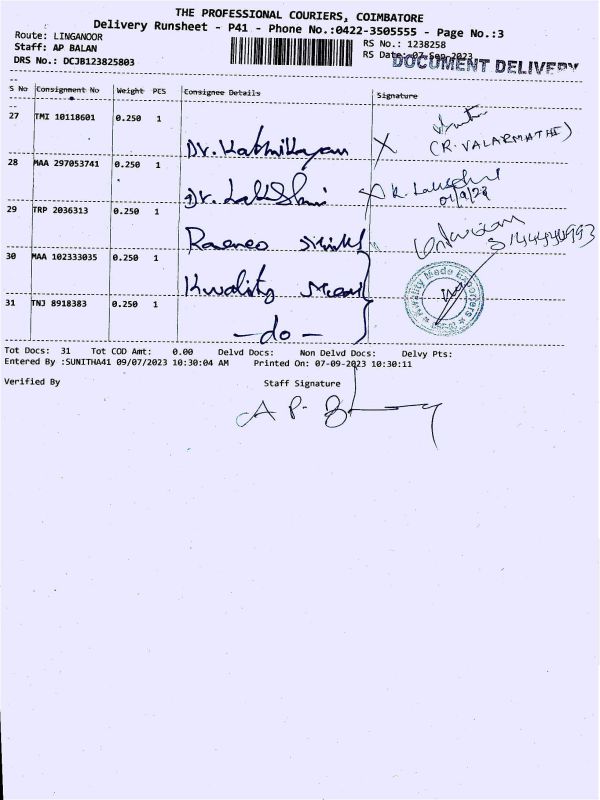 THE PROFESSIONAL COURIERS, COIMBATORE
Delivery Runsheet - P41 - Phone No.:0422-3505555 - Page No.:3
Route: LINGANOOR
RS No.: 1238258
Staff: AP BALAN
RS Date: 07-Sep-2023
DOCUMENT DELIVERY
DRS No.: DCJB123825803
S No Consignment No Weight PCS Consignee Details Signature
27 TMI 10118601 0.250 1
(R. VALARMATHI)
28 MAA 297053741 0.250 1 Dr. Lakshmi
29 TRP 2036313 0.250 1
30 MAA 102333035 0.250 1 Kwality
31 TNJ 8918383 0.250 1 - do -
Tot Docs: 31 Tot COD Amt: 0.00 Delvd Docs: Non Delvd Docs: Delvy Pts:
Entered By :SUNITHA41 09/07/2023 10:30:04 AM Printed On: 07-09-2023 10:30:11
Verified By Staff Signature
A P. B